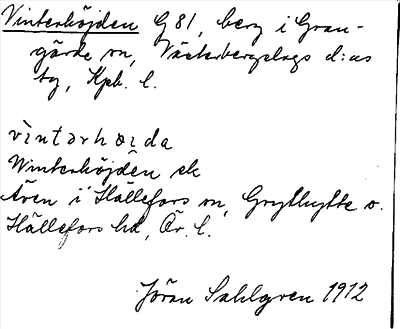 Vinterhöjden G 81, berg i Gran-
gärde sn, Västerbergslags d:as
tg, Kpb. l.
vìntərhœ̨ɪda
Winterhöjden ek
Även i Hällefors sn, Grythytte o.
Hällefors hd, Ör. l.
Jöran Sahlgren 1912